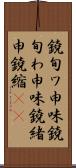 鏡旬ワ申味鏡
旬わ申味鏡緒
申鏡縮